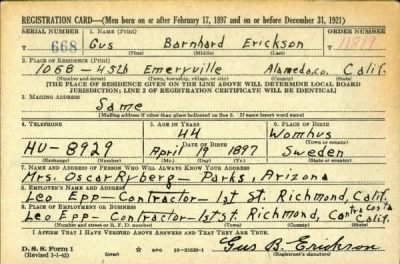 REGISTRATION CARD—(Men born on or after February 17, 1897 and on or before December 31, 1921)
SERIAL NUMBER 1. NAME (Print) ORDER NUMBER
668 Gus Barnhard Erickson 11817
(First) (Middle) (Last)
2. PLACE OF RESIDENCE (Print)
1068-45th Emeryville Alameda.co. Calif.
(Number and street) (Town, township, village, or city) (County) (State)
[THE PLACE OF RESIDENCE GIVEN ON THE LINE ABOVE WILL DETERMINE LOCAL BOARD
JURISDICTION; LINE 2 OF REGISTRATION CERTIFICATE WILL BE IDENTICAL]
3. MAILING ADDRESS
Same
[Mailing address if other than place indicated on line 2. If same insert word same]
4. TELEPHONE 5. AGE IN YEARS 6. PLACE OF BIRTH
44 Womhus
DATE OF BIRTH (Town or county)
HU-8929 April 19 1897 Sweden
(Exchange) (Number) (Mo.) (Day) (Yr.) (State or country)
7. NAME AND ADDRESS OF PERSON WHO WILL ALWAYS KNOW YOUR ADDRESS
Mrs. Oscar Ryberg - Parks, Arizona
8. EMPLOYER'S NAME AND ADDRESS
Leo Epp-Contractor-1st St. Richmond, Calif.
9. PLACE OF EMPLOYMENT OR BUSINESS
Leo Epp-Contractor-1st St. Richmond, Contra Costa Calif.
(Number and street or R. F. D. number) (Town) (County) (State)
I AFFIRM THAT I HAVE VERIFIED ABOVE ANSWERS AND THAT THEY ARE TRUE.
D. S. S. Form 1
(Revised 1-1-42) Gus B. Erickson